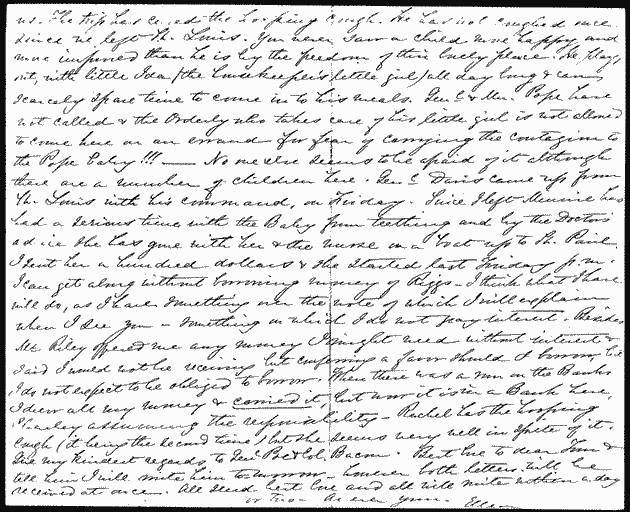 us. The trip has cured the hooping cough. He has not coughed once
since we left St. Louis. You never saw a child more happy and
more improved than he is by the freedom of this lovely place. He plays
out, with little Ida (the housekeeper's little girl) all day long & can
scarcely spare time to come in to his meals. Genl. & Mrs. Pope have
not called & the Orderly who takes care of his little girl is not allowed
to come here on an errand for fear of carrying the contagion to
the Pope Baby!!! — No one else seems to be afraid of it although
there are a number of children here. Genl. Davis came up from
St. Louis with his command, on Friday. Since I left Minnie has
had a serious time with the Baby from teething and by the Doctor's
advice she has gone with her & the nurse on a boat up to St. Paul.
I sent her a hundred dollars & she started last Friday p.m.
I can get along without borrowing money of Riggs - I think what I have
will do, as I have something over the note of which I will explain
when I see you - something on which I do not pay interest. Besides
Mr. Riley offered me any money I might need without interest &
said I would not be receiving but conferring a favor should I borrow, but
I do not expect to be obliged to borrow. When there was a run on the Banks
I drew all my money & carried it, but now it is in a Bank here,
Charley assuming the responsibility - Rachel has the hooping
cough (it being the second time) but she seems very well in spite of it.
Give my kindest regards to Genl. Poe & Col. Bacon. Best love to dear Tom &
tell him I will write him to-morrow - however both letters will be
received at once. All send best love and all will write within a day
or two. As ever yours
Ellen